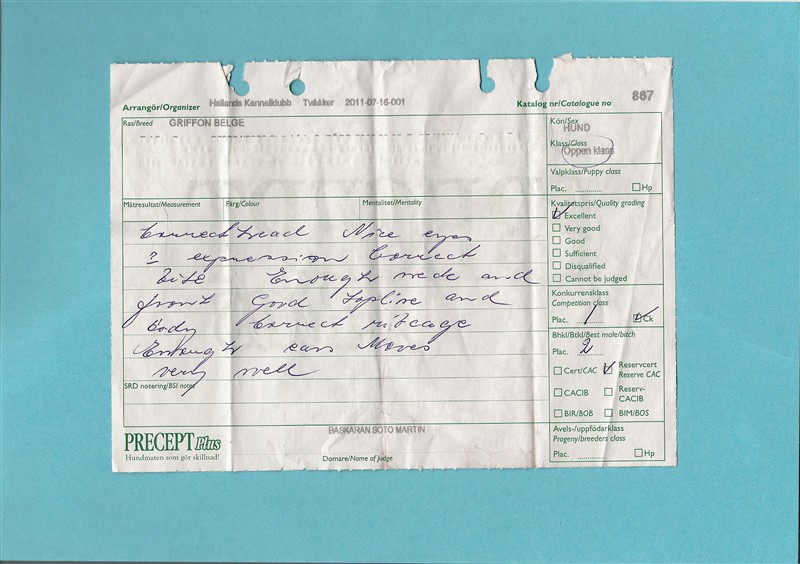 Arrangör/Organizer Hallands Kennelklubb Tvååker 2011-07-16-001 Katalog nr/Catalogue no 867
Ras/Breed GRIFFON BELGE
Kön/Sex
HUND
Klass/Class
Öppen klass
Valpklass/Puppy class
Plac. Hp
Mätresultat/Measurement Färg/Colour Mentalitet/Mentality
Kvalitetspris/Quality grading
Excellent
Very good
Good
Sufficient
Disqualified
Cannot be judged
Correct head Nice eyes
expression Correct
bite Enough neck and
front Good topline and
body Correct ribcage
Enough ears Moves
very well
Konkurrensklass
Competition class
Plac. 1 Ck
Bhkl/Btkl/Best male/bitch
Plac. 2
Cert/CAC Reservcert
Reserve CAC
CACIB Reserv-
CACIB
BIR/BOB BIM/BOS
Avels-/uppfödarklass
Progeny/breeders class
Plac. Hp
SRD notering/BSI notes
BASKARAN SOTO MARTIN
PRECEPT Plus
Hundmaten som gör skillnad!
Domare/Name of judge